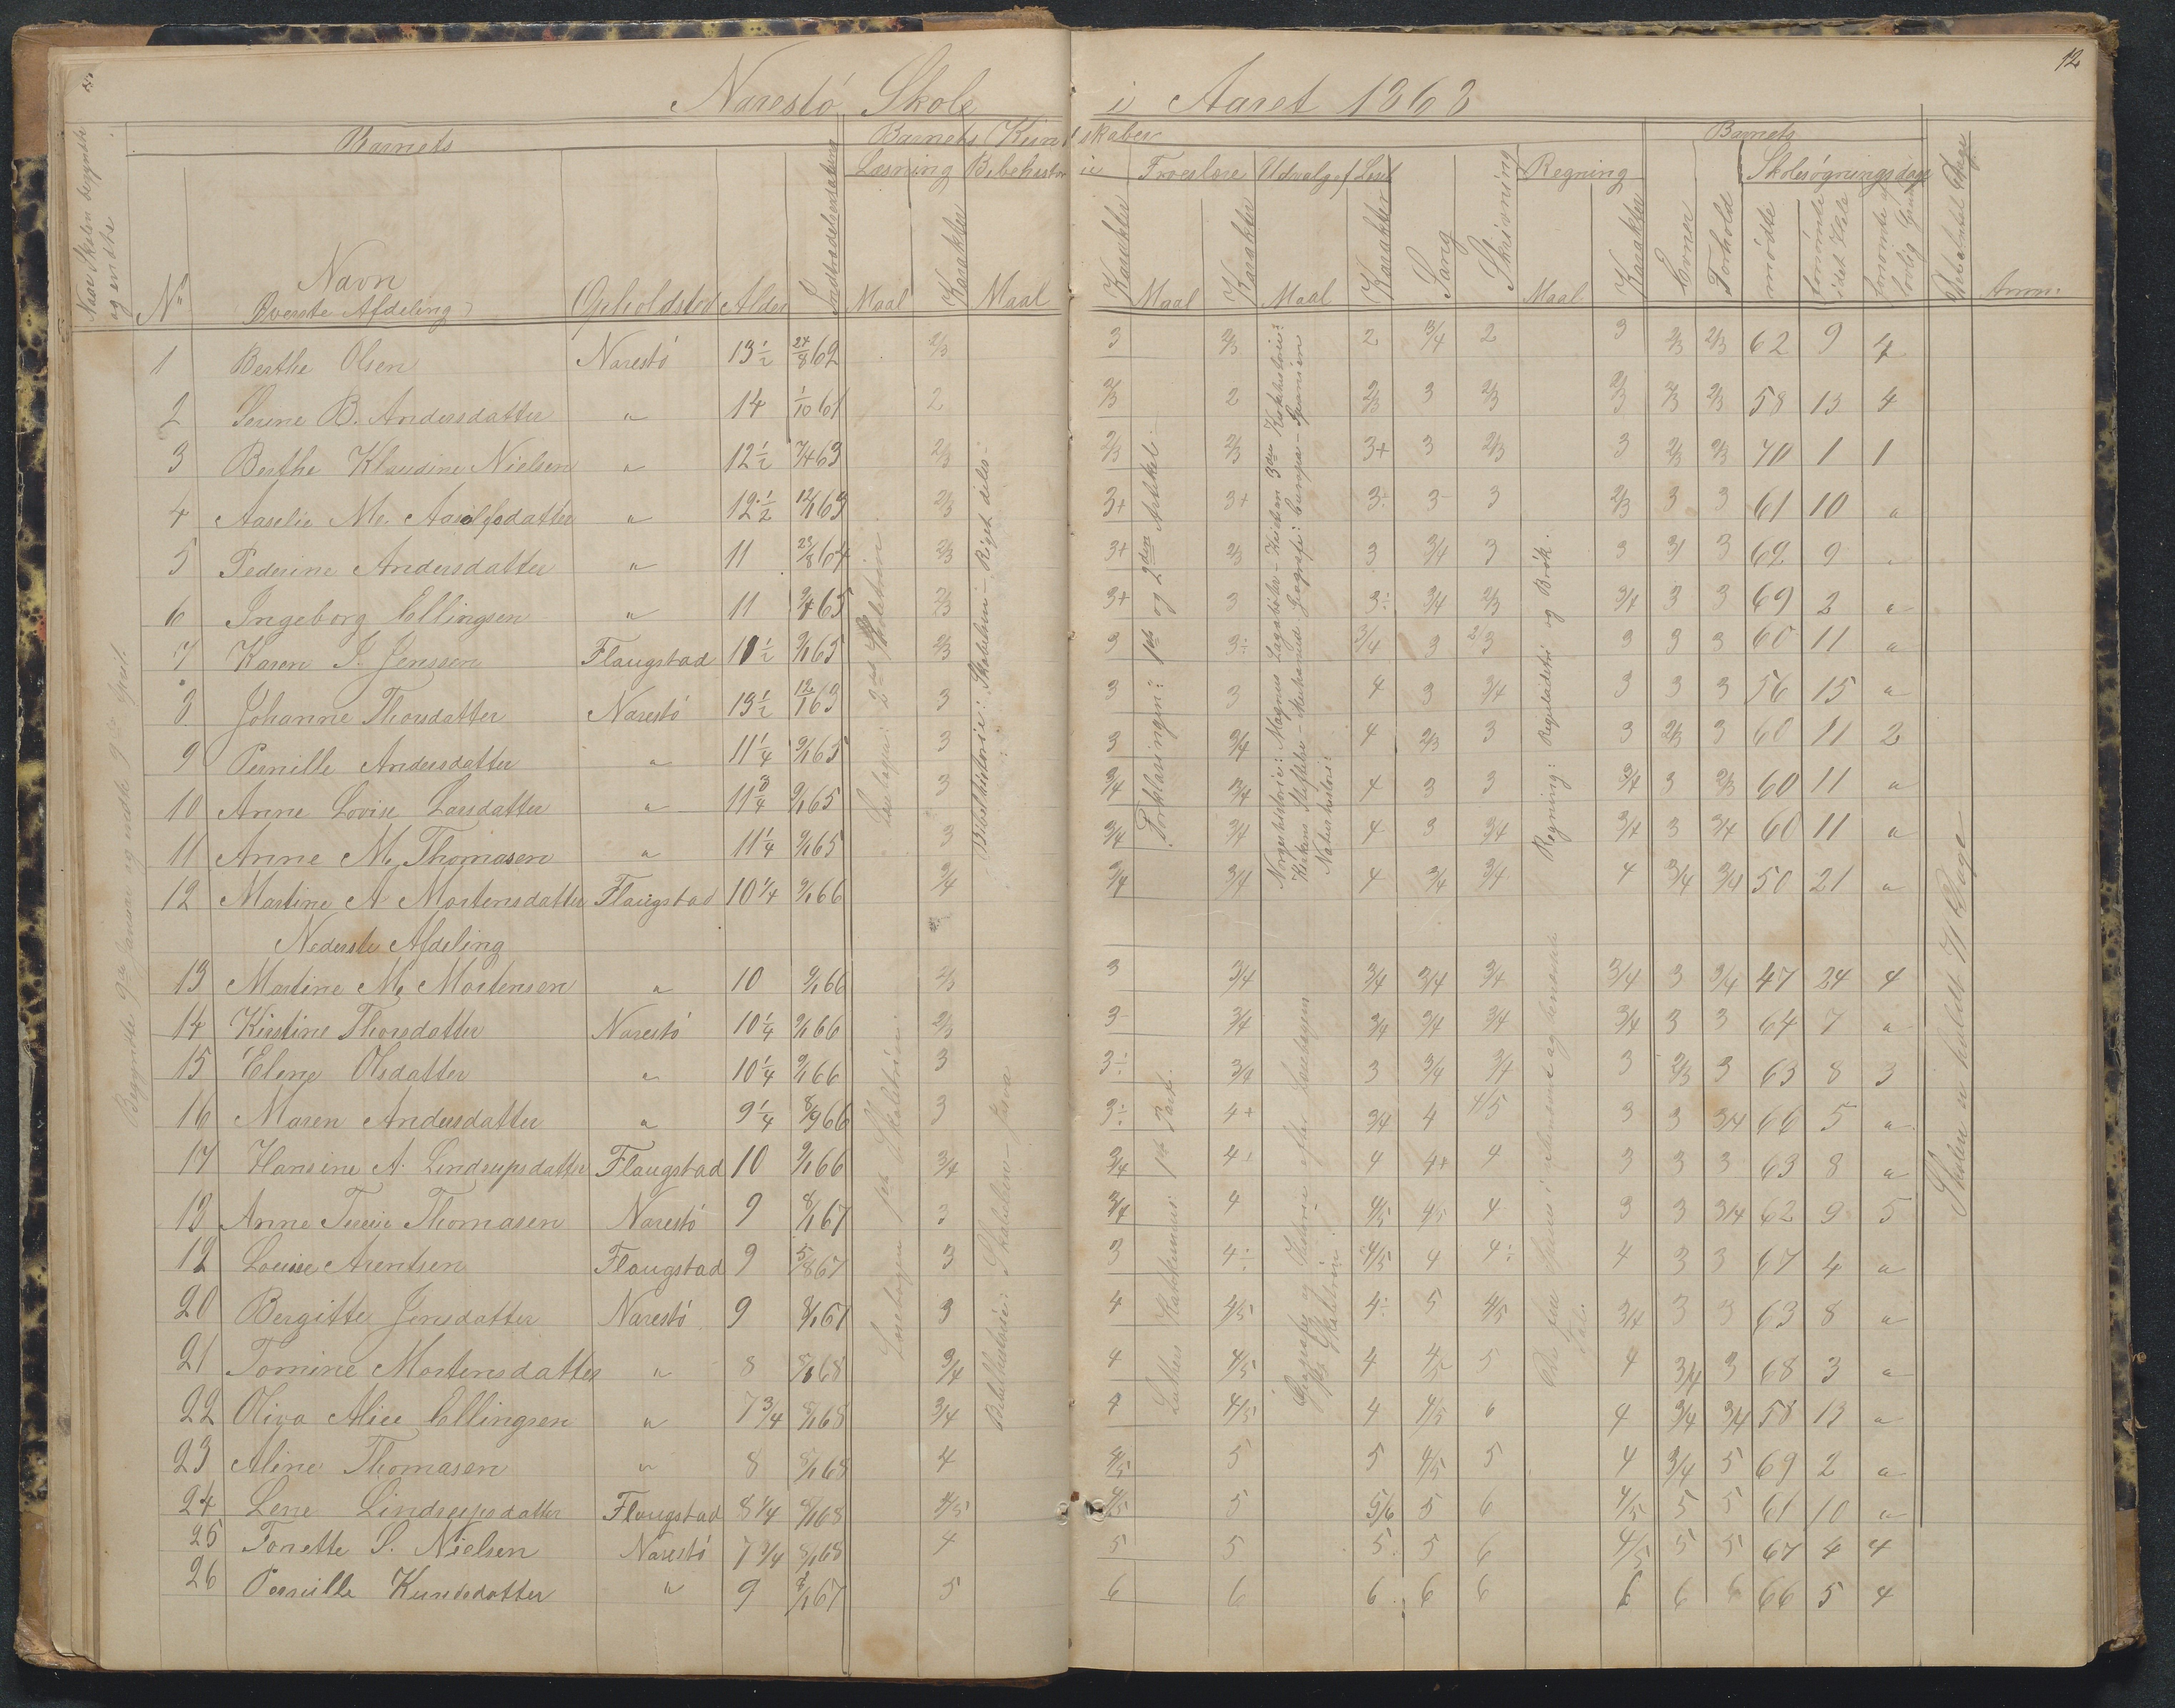 Narestö Skole i Aaret 1868
12
Barnets
Barnets Kundskaber
Barnets
Læsning
Troeslære
Udvalg af Læsb
Regning
Skolesøgningsdage
No
Navn
Øverste Afdeling
Opholdsted
Alder
Maal
Karakter
Maal
Karakter
Maal
Karakter
Maal
Karakter
Sang
Skrivning
Maal
Karakter
Evner
Forhold
mødte
forsømte
Anm:
1 Berthe Olsen Narestö 13½ 24/8 62 2/3 3 2/3 2 3/4 2 3 2/3 2/3 62 9 4
2 Serine B. Andersdatter " 14 1/10 61 2 2/3 2 2/3 3 2/3 2/3 2/3 2/3 58 13 4
3 Berthe Klaudine Nielsen " 12½ 7/4 63 2/3 2/3 2/3 3+ 3 2/3 3 2/3 2/3 70 1 1
4 Aaselie M. Aasulfsdatter " 12½ 12/1 63 2/3 3+ 3+ 3÷ 3- 3 2/3 3 3 61 10 "
5 Pederine Andersdatter " 11 23/8 64 2/3 3+ 2/3 3 3/4 3 3 3 3 62 9 "
6 Ingeborg Ellingsen " 11 65 2/3 3+ 3 3÷ 3/4 2/3 3/4 3 3 69 2 "
7 Karen J. Jenssen Flaugstad 11½ 9/1 65 2/3 3 3÷ 3/4 3 2/3 3 3 3 60 11 "
8 Johanne Thorsdatter Narestö 13½ 12/1 63 3 3 3 4 3 3/4 3 3 3 56 15 "
9 Pernille Andersdatter " 11¼ 9/1 65 3 3 3/4 4 2/3 3 3 2/3 3 60 11 2
10 Anne Lovise Larsdatter " 11¾ 9/1 65 3 3/4 3/4 4 3 3 3/4 3 2/3 60 11 "
11 Anne M. Thomasen " 11¼ 9/1 65 3 3/4 3/4 4 3 3/4 3/4 3 3/4 60 11 "
12 Martine A Mortensdatter Flaugstad 10¼ 9/1 66 3/4 3/4 3/4 4 3/4 3/4 4 3/4 3/4 50 21 "
Nederste Afdeling
13 Martine M. Mortensen " 10 9/1 66 2/3 3 3/4 3/4 3/4 3/4 3/4 3 3/4 47 24 4
14 Kirstine Thorsdatter Narestö 10¼ 9/1 66 2/3 3- 3/4 3/4 3/4 3/4 3/4 3 3 64 7 "
15 Elene Olsdatter " 10¼ 9/1 66 3 3÷ 3/4 3 3/4 3/4 3 2/3 3 63 8 3
16 Maren Andersdatter " 9¼ 8/9 66 3 3÷ 4+ 3/4 4 4/5 3 3 3/4 66 5 "
17 Hansine A. Lindrupsdatter Flaugstad 10 9/1 66 3/4 3/4 4+ 4 4+ 4 3 3 3 63 8 "
18 Anne Terese Thomasen Narestö 9 8/1 67 3 3/4 4 4/5 4/5 4 3 3 3/4 62 9 5
19 Louise Arentsen Flaugstad 9 5/8 67 3 3 4÷ 4/5 4 4÷ 4 3 3 67 4 "
20 Bergitte Jensdatter Narestö 9 8/1 67 3 4 4/5 4÷ 5 4/5 3/4 3 3 63 8 "
21 Tomine Mortensdatter " 8 8/1 68 3/4 4 4/5 4 4/5 5 4 3/4 3 68 3 "
22 Oliva Alice Ellingsen " 7¾ 8/1 68 3/4 4 4/5 4 4/5 6 4 3/4 3/4 58 13 "
23 Aline Thomasen " 8 8/1 68 4 4/5 5 5 4/5 5 4 3/4 5 69 2 "
24 Lene Lindrupsdatter Flaugstad 8¼ 8/1 68 4/5 4/5 5 5/6 5 6 4/5 5 5 61 10 "
25 Tonette S. Nielsen Narestö 7¾ 8/1 68 4 5 5 5 5 6 4/5 5 5 67 4 4
26 Pernille Knudsdatter " 9 8/1 67 5 6 6 6 6 6 6 6 6 66 5 4
Begyndte 9de Januar og endte April
Læsebogen: 2det Skoletrin
Bibelhistorie: Skabelsen - Riget delis -
Forklaringen: 1ste og 2den Artikel
Norgeshistorie: Magnus Lagabøter
Naturhistorie:
Regning: Regeladetri og Brök.
Læsebogen 1ste Skoletrin.
Bibelhistorie: Skabelsen
Luthers Katekismus: 1ste Part.
Geografie og Historie efter Læsebogens
1ste Skoletrin.
Skolen er holdt 71 Dage